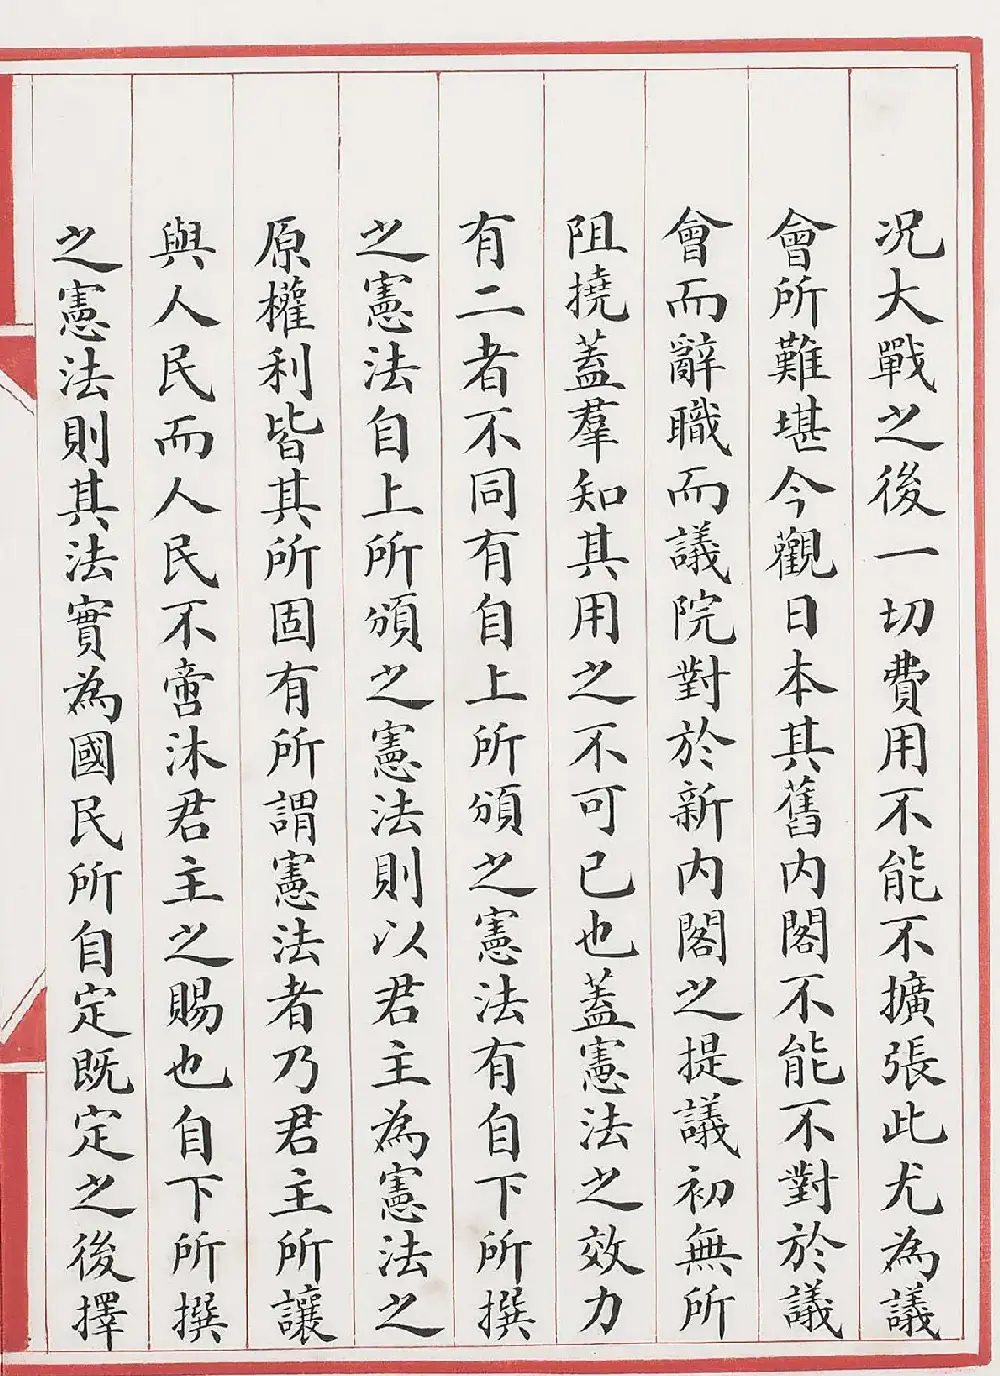 况大戰之後一切費用不能不擴張此尤為議
會所難堪今觀日本其舊內閣不能不對於議
會而辭職而議院對於新內閣之提議初無所
阻撓蓋羣知其用之不可已也蓋憲法之效力
有二者不同有自上所頒之憲法有自下所撰
之憲法自上所頒之憲法則以君主為憲法之
原權利皆其所固有所謂憲法者乃君主所讓
與人民而人民不啻沐君主之賜也自下所撰
之憲法則其法實為國民所自定既定之後擇